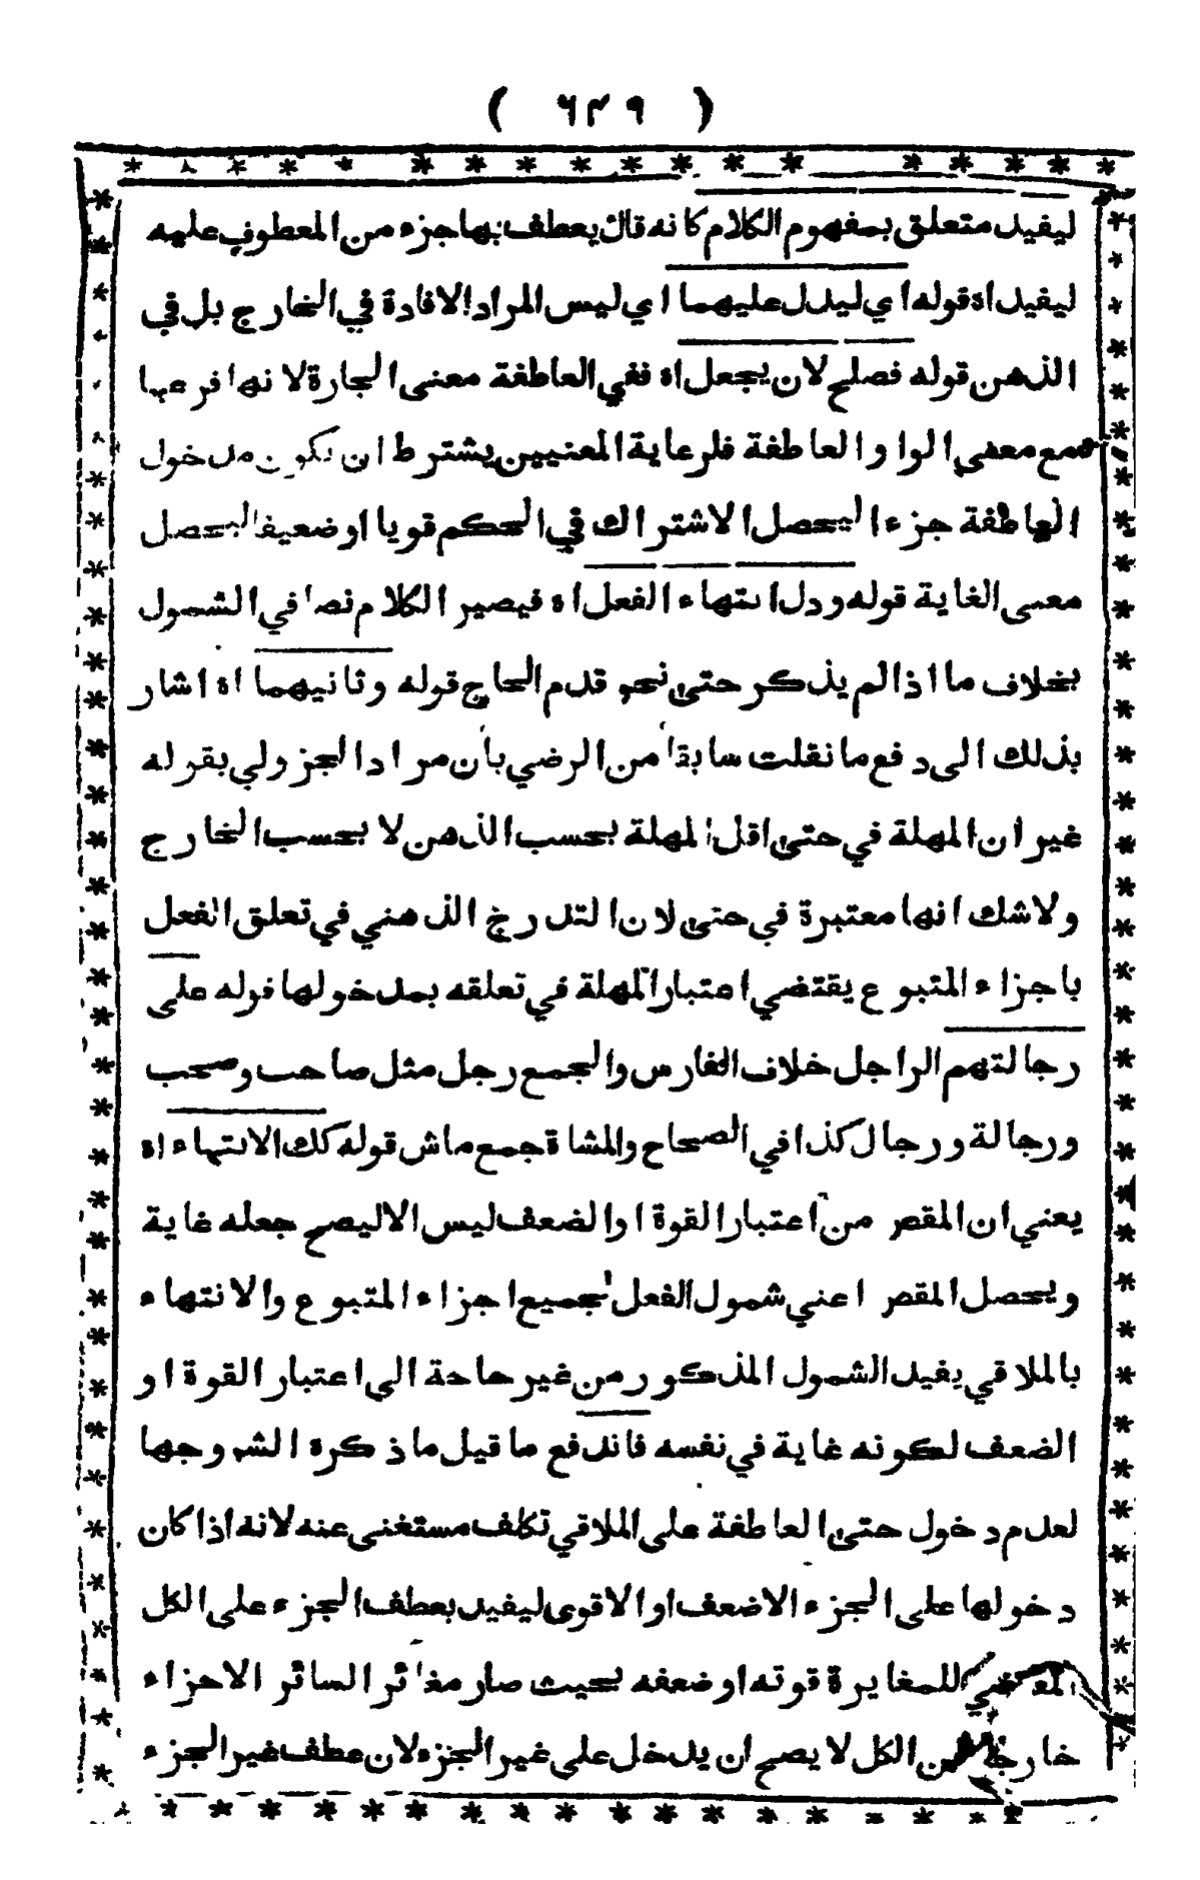 ( ٦٣٩ )
ليفيد متعلق بمفهوم الكلام كانه قال يعطف بها جزء من المعطوف عليه
ليفيد اه قوله اي ليدل عليهما اي ليس المراد الافادة في الخارج بل في
الذهن قوله فصلح لان يجعل اه ففي العاطفة معنى الجارة لانها فرعها
مع معنى الواو العاطفة فلرعاية المعنيين يشترط ان يكون مدخول
العاطفة جزء اليحصل الاشتراك في الحكم قويا او ضعيفا ليحصل
معنى الغاية قوله ودل انتهاء الفعل اه فيصير الكلام نصا في الشمول
بخلاف ما اذا لم يذكر حتى نحو قدم الحاج قوله وثانيهما اه اشار
بذلك الى دفع ما نقلت سابقا من الرضي بأن مراد الجزولي بقوله
غير ان المهلة في حتى اقل المهلة بحسب الذهن لا بحسب الخارج
ولا شك انها معتبرة في حتى لان التدريج الذهني في تعلق الفعل
باجزاء المتبوع يقتضي اعتبار المهلة في تعلقه بمدخولها قوله على
رجالتهم الراجل خلاف الفارس والجمع رجل مثل صاحب وصحب
ورجالة ورجال كذا في الصحاح والمشاة جمع ماش قوله كلك الانتهاء اه
يعني ان المقصر من اعتبار القوة او الضعف ليس الا ليصح جعله غاية
ويحصل المقصر اعني شمول الفعل لجميع اجزاء المتبوع والانتهاء
بالملاقي يفيد الشمول المذكور من غير حاجة الى اعتبار القوة او
الضعف لكونه غاية في نفسه فاندفع ما قيل ما ذكره الشر وجها
لعدم دخول حتى العاطفة على الملاقي تكلف مستغنى عنه لانه اذا كان
دخولها على الجزء الاضعف او الاقوى ليفيد بعطف الجزء على الكل
المقتضي للمغايرة قوته او ضعفه بحيث صار مغائر السائر الاجزاء
خارجا من الكل لا يصح ان يدخل على غير الجزء لان عطف غير الجزء